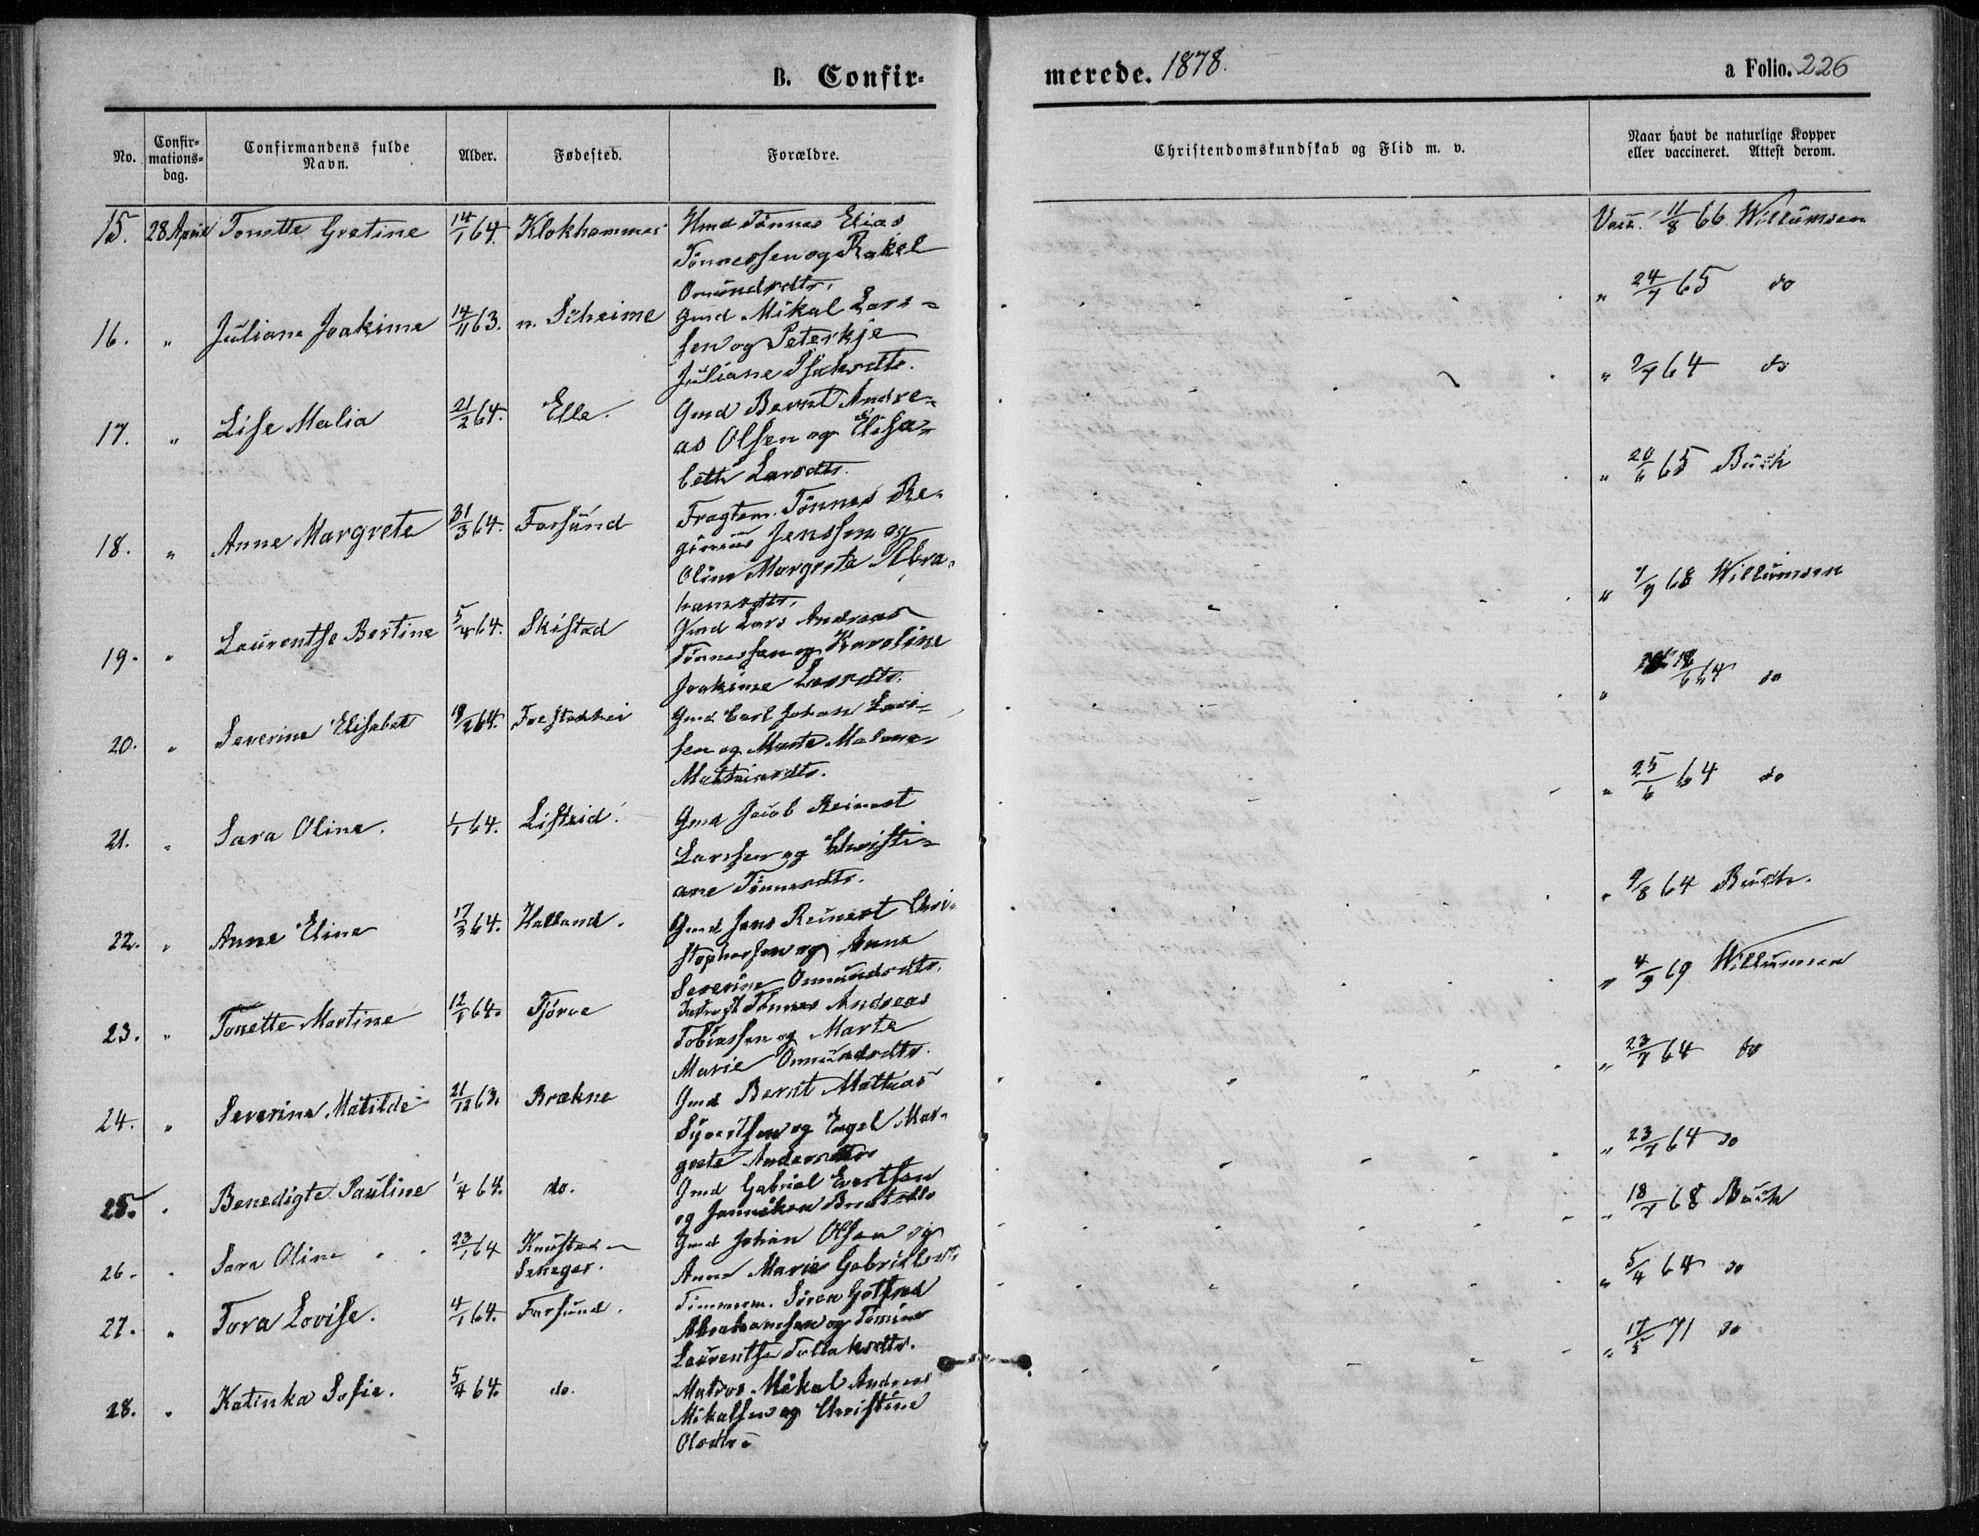 B. Confir-
merede. 1878.
a Folio. 226
No.
Confir-
mations-
dag.
Confirmandens fulde
Navn.
Alder.
Fødested.
Forældre.
Christendomskundskab og Flid m. v.
Naar havt de naturlige Kopper
eller vaccineret. Attest derom.
15. 28 April Tonette Gretine 14/1 64. Klokhammer Gmd Tønnes Elias
Tønnessen og Rakel
Omundsdtr.
Vacc. 11/8 66 Willumsen
16. " Juliane Joakime 14/11 63. n. Scheime Gmd. Mikal Lars-
sen og Peterkje
Juliane Isaksdtr.
" 24/7 65 do
17. " Lise Malia 21/2 64. Elle. Gmd Bernt Andre-
as Olsen og Elisa-
beth Larsdtr.
" 2/7 64 do
18. " Anne Margrete 31/3 64. Farsund Fragtem. Tønnes Re-
ginius Jenssen og
Oline Margreta Abra-
hamsdtr.
" 20/6 65 Buch
19. " Laurentse Bertine 5/4 64. Skistad Gmd Lars Andreas
Tønnessen og Karoline
Joakime Larsdtr.
" 7/9 68 Willumsen
20. " Severine Elisabet 19/2 64. Gmd Carl Johan Lars-
sen og Marte Malene
Mathiasdtr.
" 64 do
21. " Sara Oline. 1/1 64. Listeid. Gmd Jacob Reinert
Larssen og Christi-
ane Tønnesdtr.
" 25/6 64 do
22. " Anne Eline 17/3 64. Halland. Gmd Jens Reinert Chri-
stophersen og Anne
Severine Omundsdtr.
" 9/8 64 Buch.
23. " Tonette Martine 12/1 64. Tjørve Tønnes Andreas
Tobiassen og Marte
Marie Omundsdtr.
" 4/9 69 Willumsen
24. " Severine Matilde 21/12 63. Brækne Gmd Bernt Mathias
Syvertsen og Engel Mar-
grete Andersdtr
" 23/7 64 do
25. " Benedigte Pauline 1/4 64. do. Gmd Gabriel Evertsen
og Janniken Berntsdtr
" 23/7 64 do
26. " Sara Oline 23/1 64 Knustad-
Gmd Johan Olsen og
Anne Marie Gabrielsdtr
" 18/7 68 Buch
27. " Tora Lovise. 4/1 64. Farsund. Timmerm. Søren Gotfred
Abrahamsen og Tomine
Laurentse Tollaksdtr.
" 5/4 64 do
28. " Katinka Sofie. 5/4 64. do. Matros Mikal Andreas
Mikalsen og Christine
Olsdtr
" 71 do